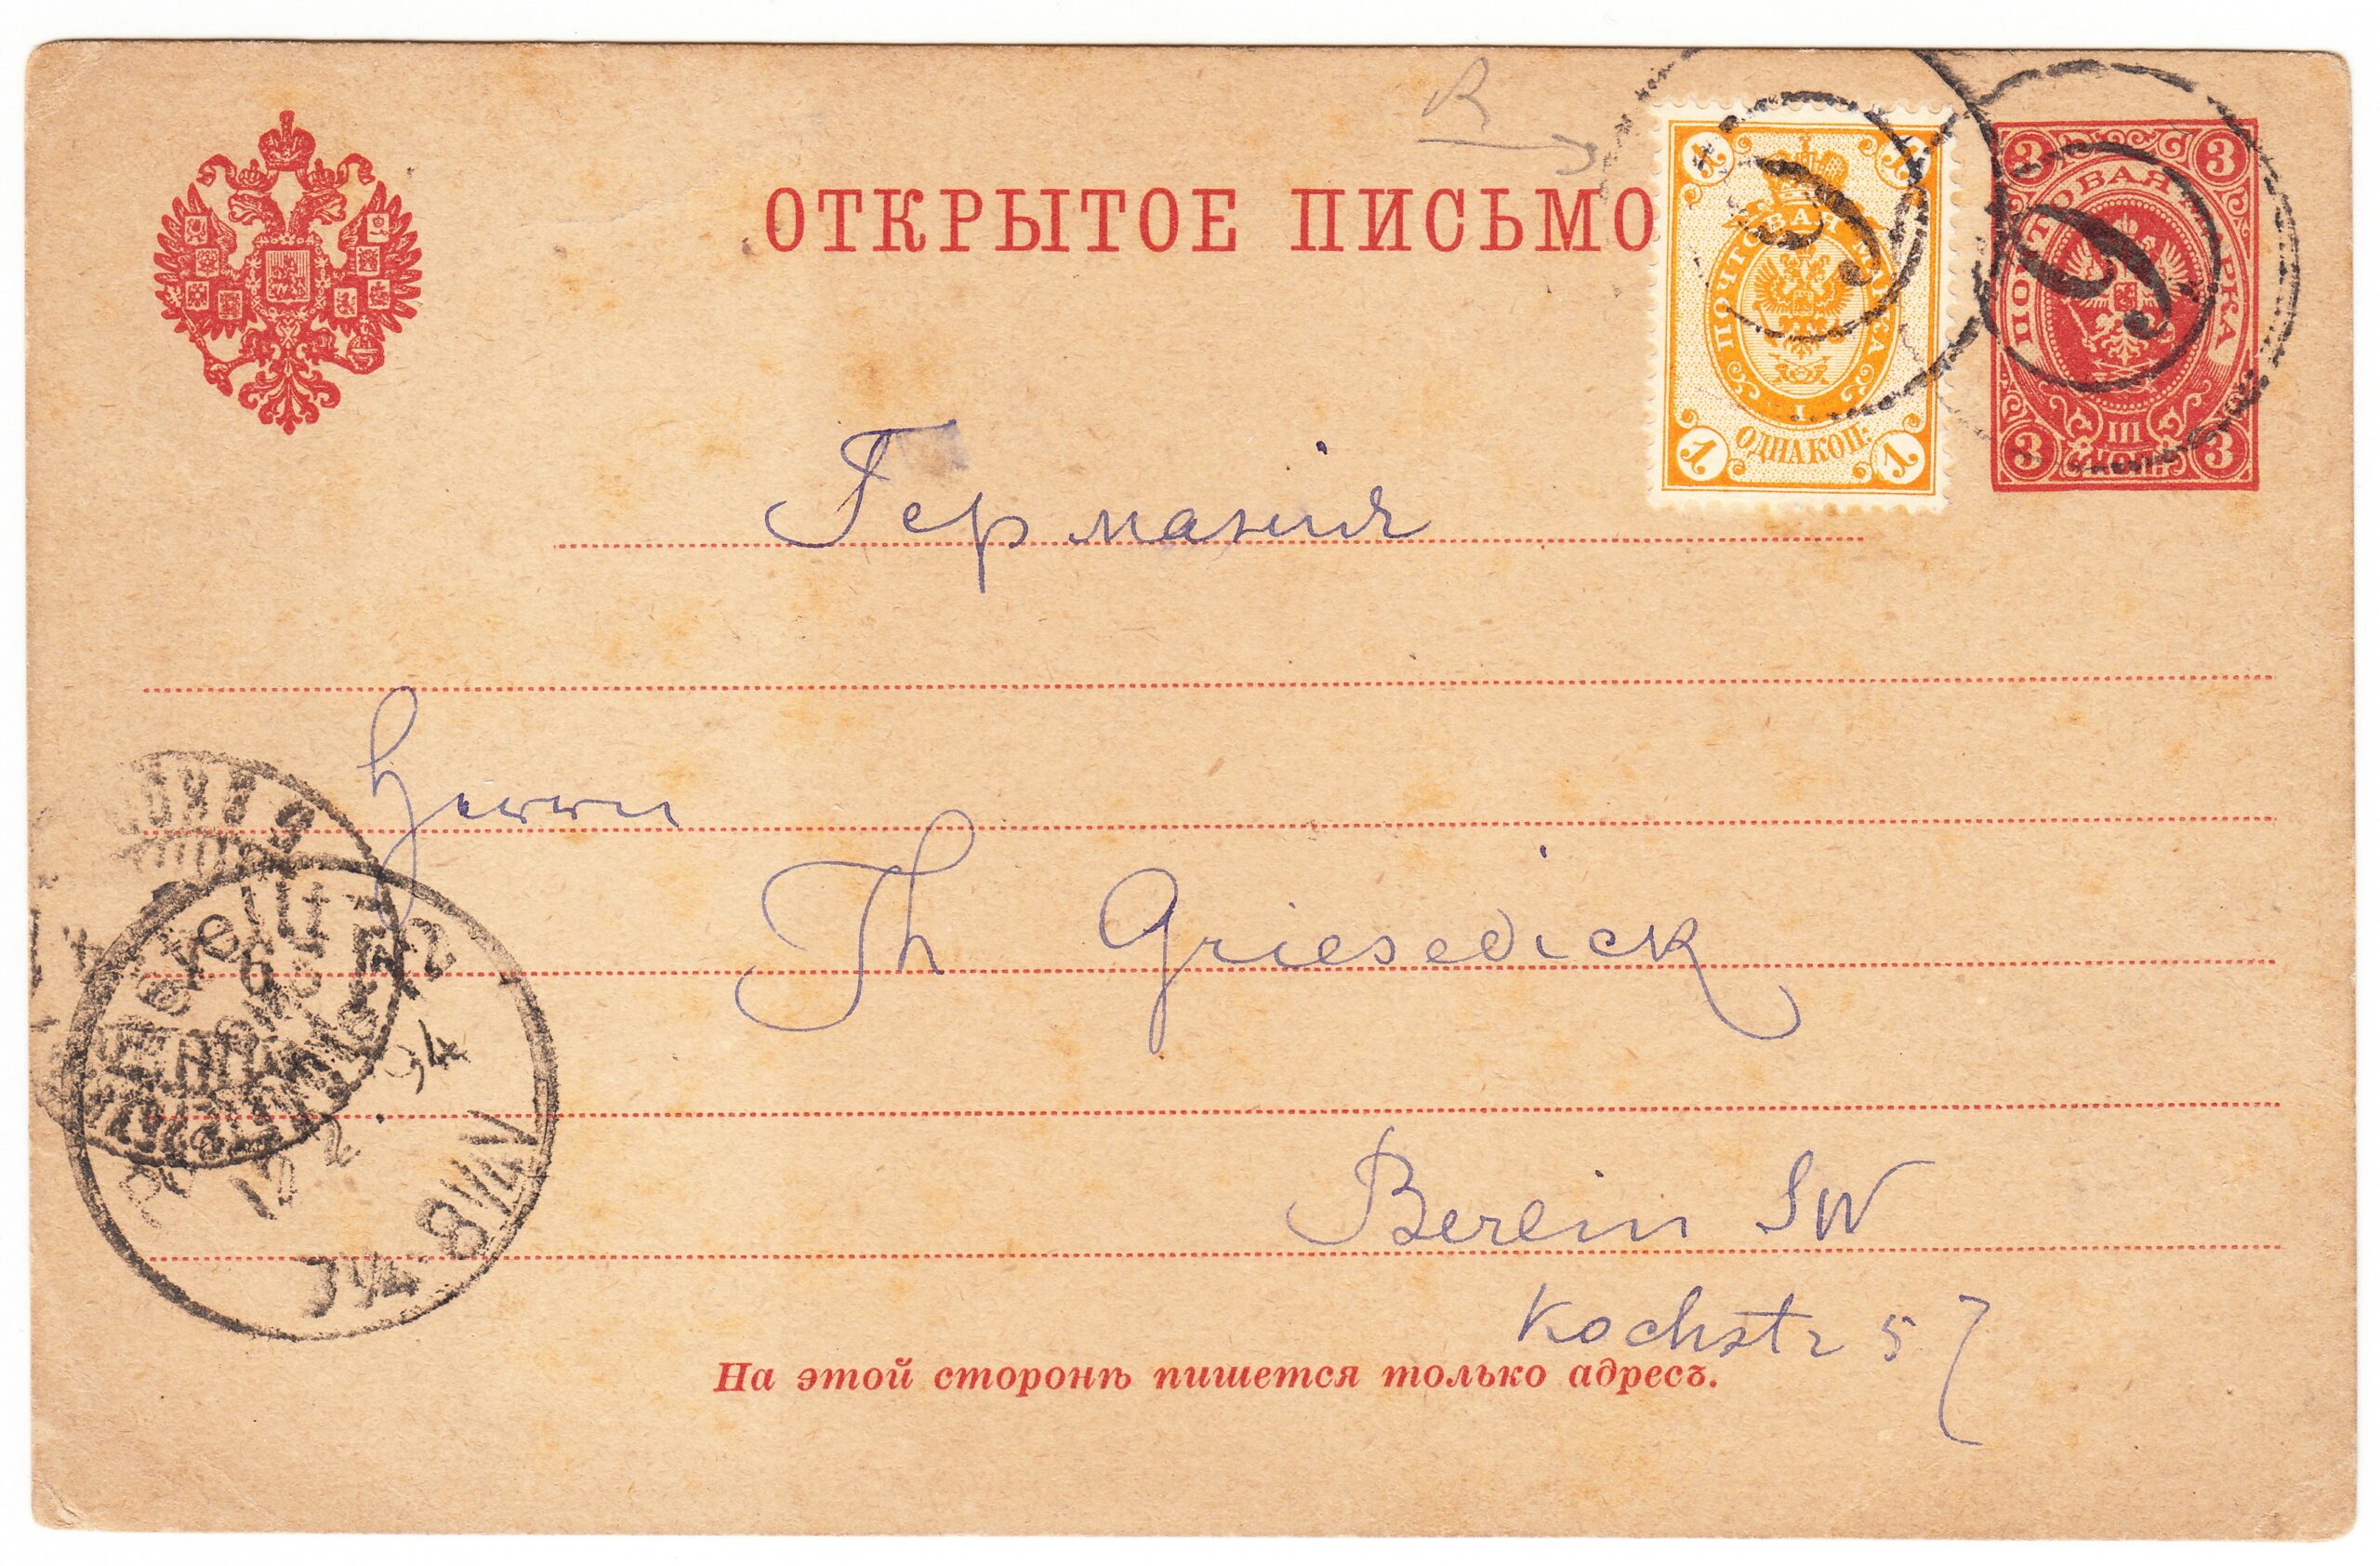 ОТКРЫТОЕ ПИСЬМО
1 1
ПОЧТОВАЯ МАРКА
I
ОДНА КОП:
1 1
3 3
ПОЧТОВАЯ МАРКА
III
КОП.
3 3
6
Германия
Herrn
Th Griesedick
Berlin SW
Kochstr 57
На этой сторонѣ пишется только адресъ.